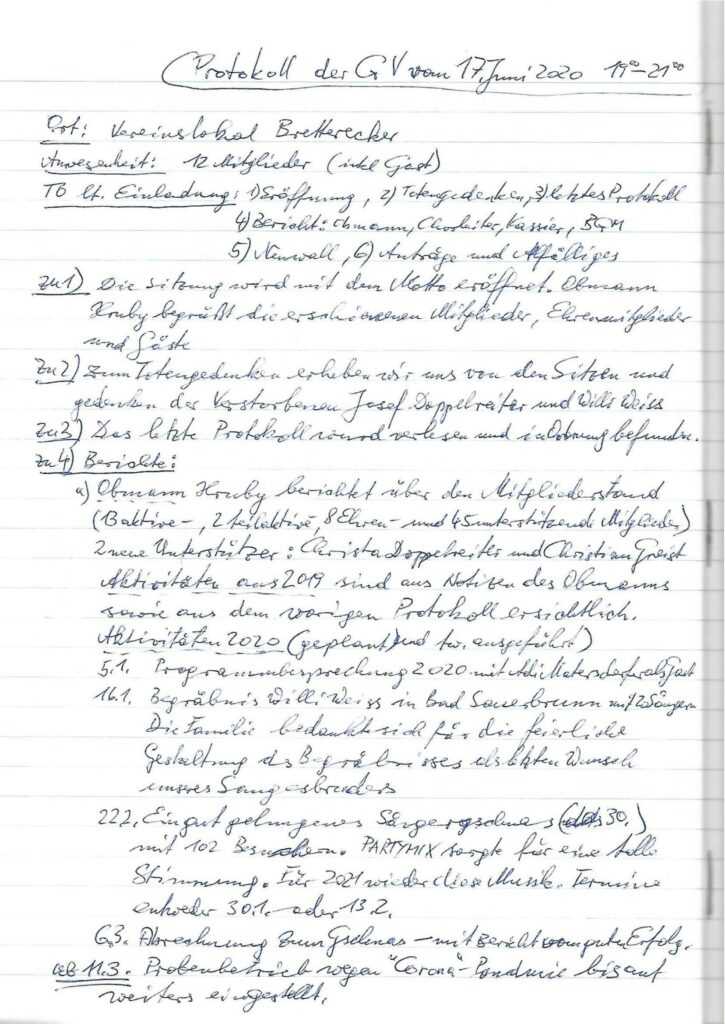 Protokoll der GV vom 17. Juni 2020 19⁰⁰-21⁰⁰
Ort: Vereinslokal Bretterecker
Anwesenheit: 12 Mitglieder (inkl Gast)
TO lt. Einladung: 1) Eröffnung, 2) Totengedenken, 3) letztes Protokoll
4) Bericht: Obmann, Chorleiter, Kassier, BGM
5) Neuwall, 6) Anträge und Allfälliges
zu 1) Die Sitzung wird mit dem Motto eröffnet. Obmann
Hruby begrüßt die erschienenen Mitglieder, Ehrenmitglieder
und Gäste
zu 2) Zum Totengedenken erheben wir uns von den Sitzen und
gedenken der Verstorbenen Josef Doppelreiter und Willi Weiss
zu 3) Das letzte Protokoll wurd verlesen und in Ordnung befunden.
zu 4) Berichte:
a) Obmann Hruby berichtet über den Mitgliederstand
(13 aktive-, 2 teilaktive, 8 Ehren- und 45 unterstützende Mitglieder)
2 neue Unterstützer: Christa Doppelreiter und Christian Greist
Aktivitäten aus 2019 sind aus Notizen des Obmanns
sowie aus dem vorigen Protokoll ersichtlich.
Aktivitäten 2020 (geplant und tw. ausgeführt)
5.1. Programmbesprechung 2020 mit Adi Matersdorfer als Gast
16.1. Begräbnis Willi Weiss in Bad Sauerbrunn mit 12 Sängern
Die Familie bedankte sich für die feierliche
Gestaltung ds Begräbnisses als letzten Wunsch
unseres Sangesbruders
22.2. Ein gut gelungenes Sängergschnas (das 30.)
mit 102 Besuchern. PARTYMIX sorgte für eine tolle
Stimmung. Für 2021 wieder diese Musik. Termine
entweder 30.1. oder 13.2.
6.3. Abrechnung zum Gschnas - mit Bericht vom guten Erfolg.
ab 11.3. Probenbetrieb wegen "Corona"-Pandmie bis auf
weiters eingestellt.